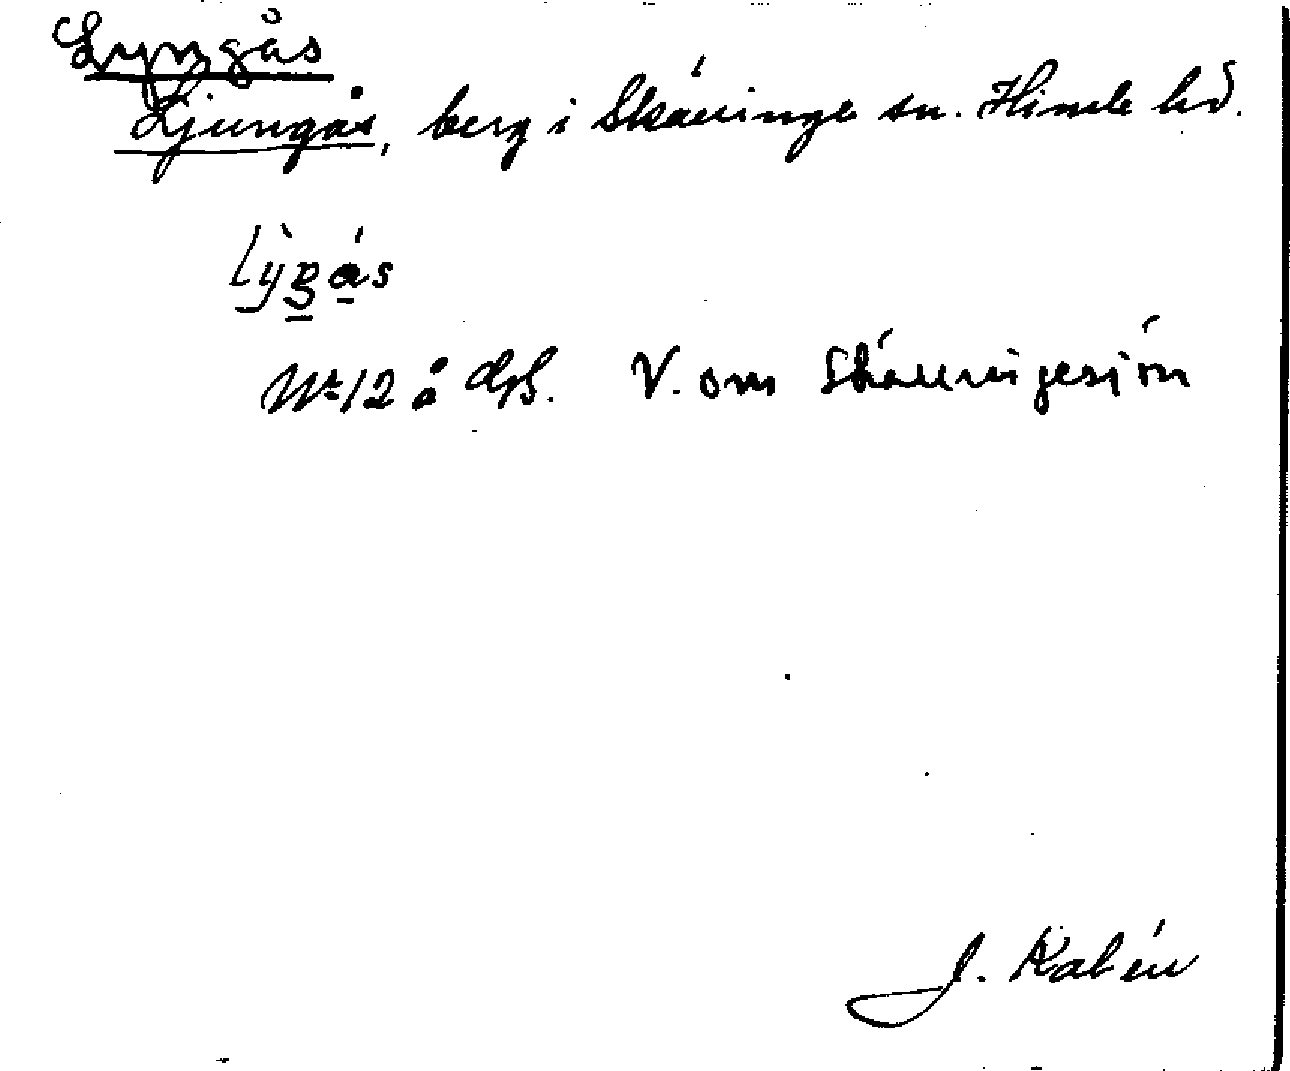 Lyngås
Ljungås, berg i Skällinge sn. Himle hd.
Nr 12 å V. om Skällingesjön
J. Kalén